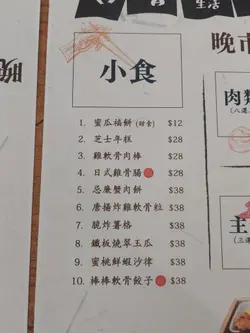 生活
小食
1. 蜜瓜福餅 (甜食) $12
2. 芝士年糕 $28
3. 雞軟骨肉棒 $28
4. 日式雞骨腸 $28
5. 忌廉蟹肉餅 $38
6. 唐揚炸雞軟骨粒 $38
7. 脆炸薯格 $38
8. 鐵板燒翠玉瓜 $38
9. 蜜桃鮮蝦沙律 $38
10. 棒棒軟骨餃子 $38
晚市
肉類
主
晚